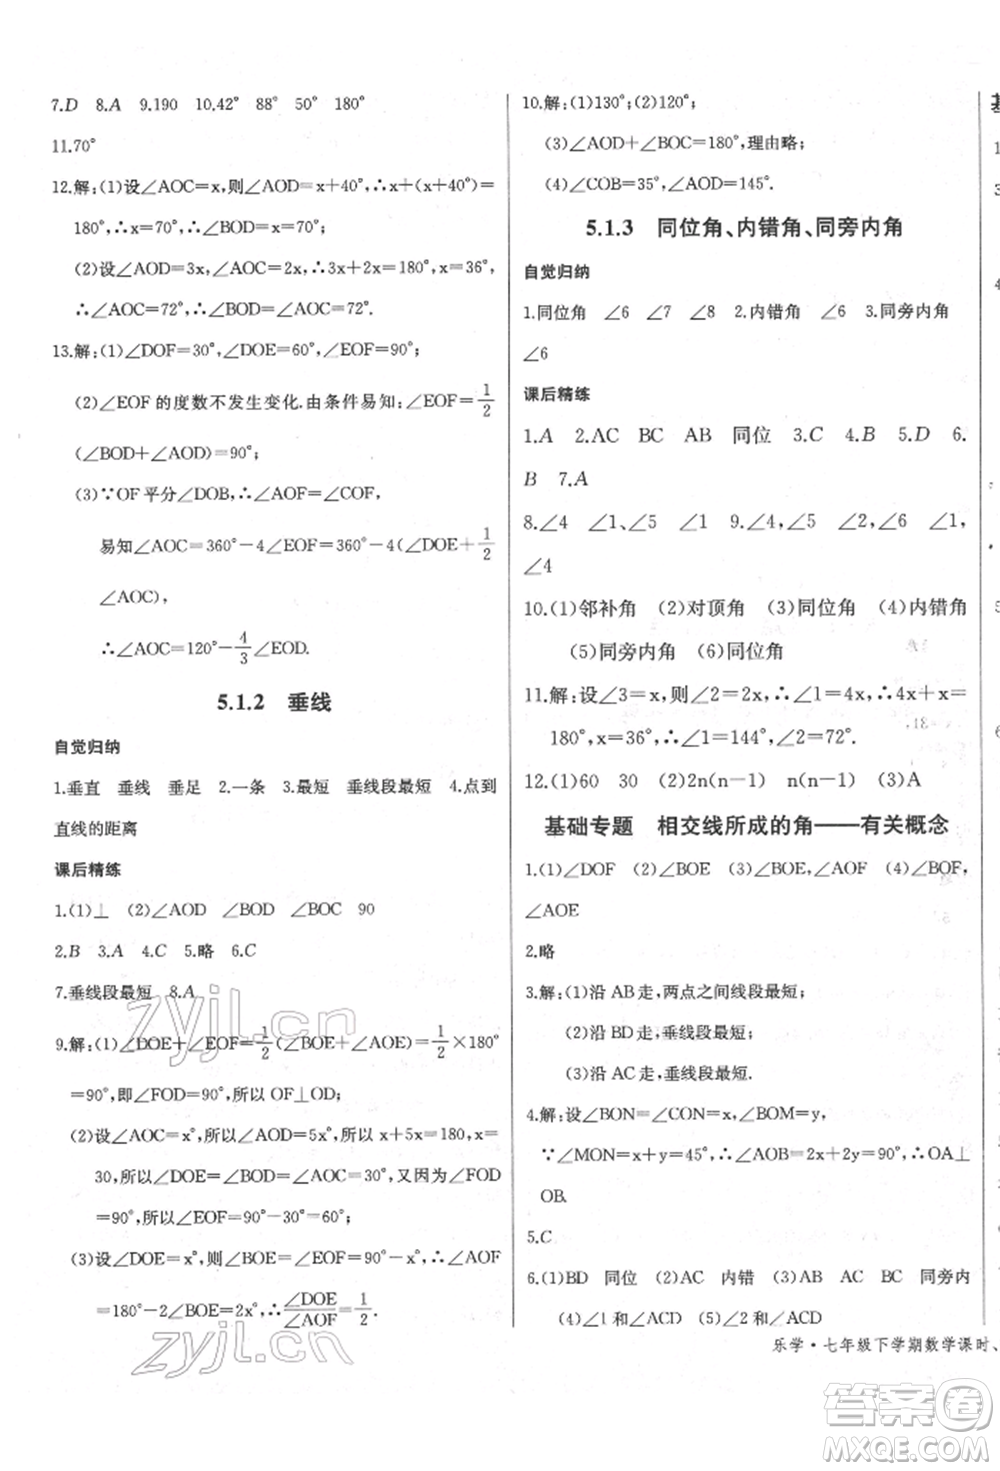 7.D 8.A 9.190 10.42° 88° 50° 180°
11.70°
12.解:(1)设∠AOC=x,则∠AOD=x+40°,∴x+(x+40°)=
180°,∴x=70°,∴∠BOD=x=70°;
(2)设∠AOD=3x,∠AOC=2x,∴3x+2x=180°,x=36°,
∴∠AOC=72°,∴∠BOD=∠AOC=72°.
13.解:(1)∠DOF=30°,∠DOE=60°,∠EOF=90°;
(2)∠EOF的度数不发生变化.由条件易知:∠EOF=1/2
(∠BOD+∠AOD)=90°;
(3)∵OF平分∠DOB,∴∠AOF=∠COF,
易知∠AOC=360°-4∠EOF=360°-4(∠DOE+1/2
∠AOC),
∴∠AOC=120°-4/3∠EOD.
5.1.2 垂线
自觉归纳
1.垂直 垂线 垂足 2.一条 3.最短 垂线段最短 4.点到
直线的距离
课后精练
1.(1)⊥ (2)∠AOD ∠BOD ∠BOC 90
2.B 3.A 4.C 5.略 6.C
7.垂线段最短 8.A
9.解:(1)∠DOE+∠EOF=1/2(∠BOE+∠AOE)=1/2×180°
=90°,即∠FOD=90°,所以OF⊥OD;
(2)设∠AOC=x°,所以∠AOD=5x°,所以x+5x=180,x=
30,所以∠DOE=∠BOD=∠AOC=30°,又因为∠FOD
=90°,所以∠EOF=90°-30°=60°;
(3)设∠DOE=x°,所以∠BOE=∠EOF=90°-x°,∠AOF
=180°-2∠BOE=2x°,∴∠DOE/∠AOF=1/2.
10.解:(1)130°;(2)120°;
(3)∠AOD+∠BOC=180°,理由略;
(4)∠COB=35°,∠AOD=145°.
5.1.3 同位角、内错角、同旁内角
自觉归纳
1.同位角 ∠6 ∠7 ∠8 2.内错角 ∠6 3.同旁内角
∠6
课后精练
1.A 2.AC BC AB 同位 3.C 4.B 5.D 6.
B 7.A
8.∠4 ∠1、∠5 ∠1 9.∠4,∠5 ∠2,∠6 ∠1,
∠4
10.(1)邻补角 (2)对顶角 (3)同位角 (4)内错角
(5)同旁内角 (6)同位角
11.解:设∠3=x,则∠2=2x,∴∠1=4x,∴4x+x=
180°,x=36°,∴∠1=144°,∠2=72°.
12.(1)60 30 (2)2n(n-1) n(n-1) (3)A
基础专题 相交线所成的角——有关概念
1.(1)∠DOF (2)∠BOE (3)∠BOE,∠AOF (4)∠BOF,
∠AOE
2.略
3.解:(1)沿AB走,两点之间线段最短;
(2)沿BD走,垂线段最短;
(3)沿AC走,垂线段最短.
4.解:设∠BON=∠CON=x,∠BOM=y,
∵∠MON=x+y=45°,∴∠AOB=2x+2y=90°,∴OA⊥
OB.
5.C
6.(1)BD 同位 (2)AC 内错 (3)AB AC BC 同旁内
(4)∠1和∠ACE (5)∠2和∠ACD
乐学·七年级下学期数学课时、
zyjl.cn
zyjl.cn
答案圈
MXQE.COM